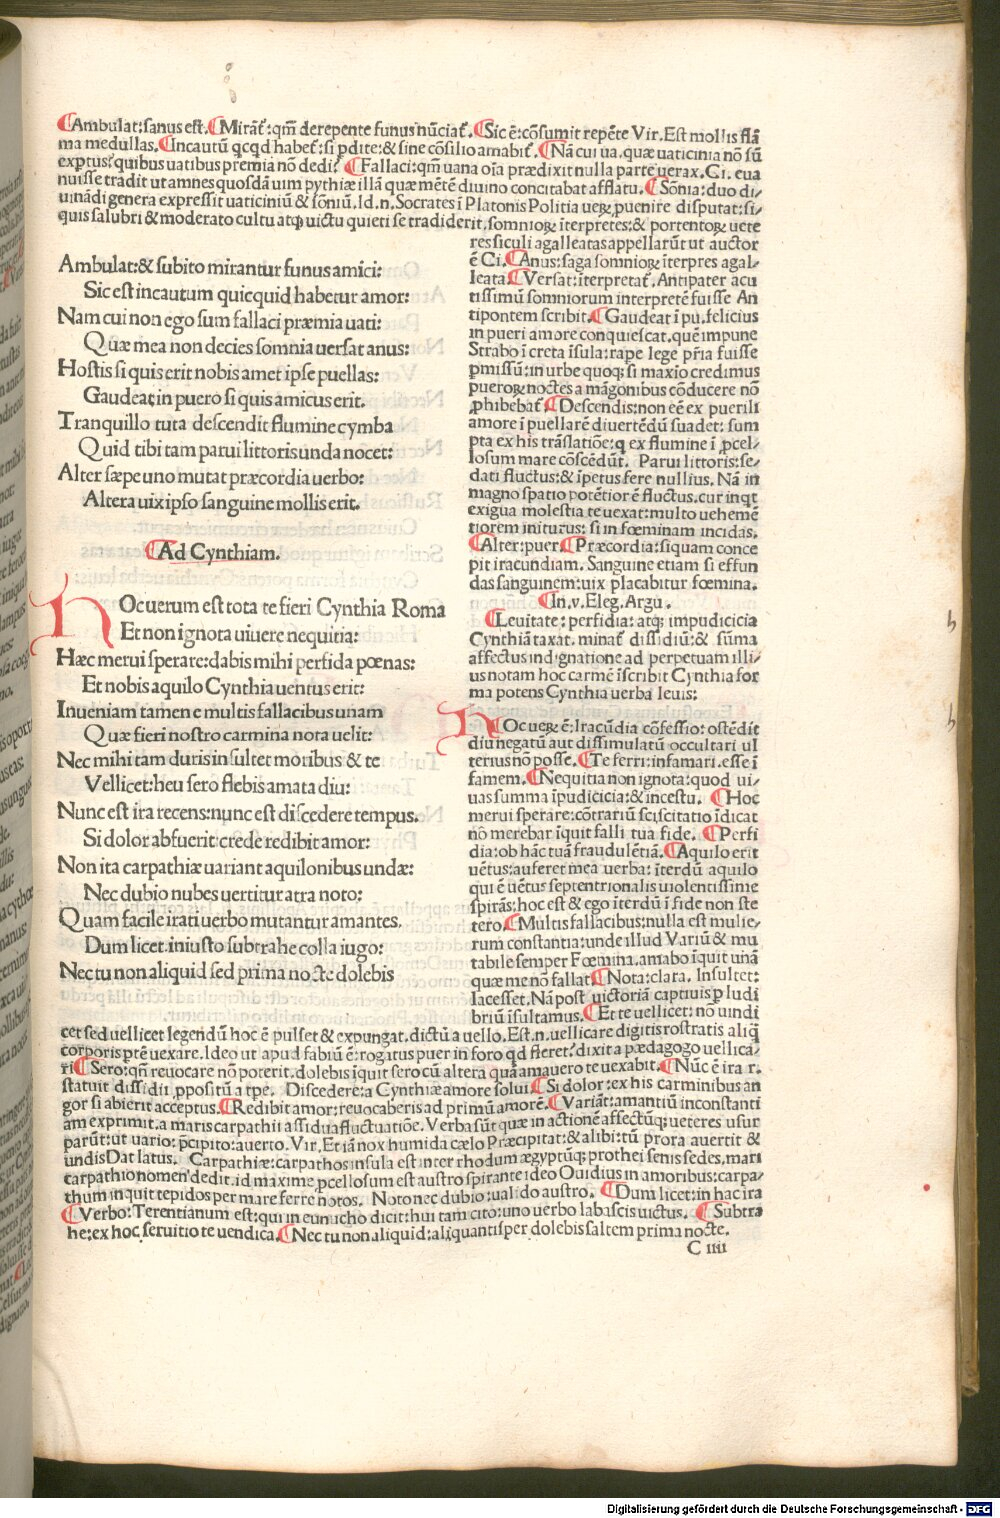 ¶Ambulat:sanus est.¶Mirāt᷑:qm̄ derepente funus nūciat᷑.¶Sic ē:cōsumit repēte Vir.Est mollis flā
ma medullas.¶Incautū qcqd habet᷑:si ꝓdite:& sine cōsilio amabit᷑.¶Nā cui ua.quæ uaticinia nō sū
exptus:quibus uatibus premia nō dedi?¶Fallaci:qm̄ uana oīa prædixit nulla parte uerax.Ci.eua
nuisse tradit ut amnes quosdā uim pythiæ illā quæ mētē diuino concitabat afflatu.¶Sōnia:duo di⸗
uinādi genera expressit uaticiniū & sōniū.Id.n.Socrates ī Platonis Politia ueꝝ puenire disputat:si⸗
quis salubri & moderato cultu atqꝫ uictu quieti se tradiderit.somnioꝝ īterpretes:& portentoꝝ uete
res siculi agalleatas appellarūt ut auctor
ē Ci.¶Anus:saga somnioꝝ īterpres agal⸗
leata.¶Versat:īterpretat᷑.Antipater acu
tissimū somniorum interpretē fuisse An
tipontem scribit.¶Gaudeat ī pu.felicius
in pueri amore conquiescat.quē impune
Strabo ī creta īsula:rape lege pr̄ia fuisse
ꝑmissū:in urbe quoqꝫ si maxio credimus
pueroꝝ noctes a māgonibus cōducere nō
ꝓhibebat᷑.¶Descendis:non eē ex puerili
amore ī puellarē diuertēdū suadet: sum
pta ex his trāslatiōe:q ex flumine ī ꝓcel⸗
losum mare cōscēdūt. Parui littoris:se⸗
dati fluctus:& īpetus fere nullius. Nā in
magno spatio potētior ē fluctus.cur inqt
exigua molestia te uexat:multo uehemē
tiorem initurus: si in fœminam incidas.
¶Alter:puer.¶Præcordia:si quam conce
pit iracundiam. Sanguine etiam si effun
das sanguinem:uix placabitur fœmina.
Ambulat:& subito mirantur funus amici:
Sic est incautum quicquid habetur amor:
Nam cui non ego sum fallaci præmia uati:
Quæ mea non decies somnia uersat anus:
Hostis si quis erit nobis amet ipse puellas:
Gaudeat in puero si quis amicus erit.
Tranquillo tuta descendit flumine cymba
Quid tibi tam parui littoris unda nocet:
Alter sæpe uno mutat præcordia uerbo:
Altera uix ipso sanguine mollis erit.
¶Ad Cynthiam.
HOc uerum est tota te fieri Cynthia Roma
Et non ignota uiuere nequitia:
Hæc merui sperare:dabis mihi perfida pœnas:
Et nobis aquilo Cynthia uentus erit:
Inueniam tamen e multis fallacibus unam
Quæ fieri nostro carmina nota uelit:
Nec mihi tam duris insultet moribus & te
Vellicet:heu sero flebis amata diu:
Nunc est ira recens:nunc est discedere tempus.
Si dolor abfuerit:crede redibit amor:
Non ita carpathiæ uariant aquilonibus undæ:
Nec dubio nubes uertitur atra noto:
Quam facile irati uerbo mutantur amantes.
Dum licet iniusto subtrahe colla iugo:
Nec tu non aliquid sed prima nocte dolebis
¶In.v.Eleg.Argu.
¶Leuitate:perfidia: atqꝫ impudicicia
Cynthiā taxat.minat᷑ dissidiū:& sūma
affectus indignatione ad perpetuam illi⸗
us notam hoc carmē īscribit Cynthia for
ma potens Cynthia uerba leuis:
HOc ueꝝ ē:Iracūdia cōfessio:ostēdit
diu negatū aut dissimulatū occultari ul
terius nō posse.¶Te ferri:infamari.esse ī
famem.¶Nequitia non ignota:quod ui⸗
uas summa īpudicicia:& incestu. ¶Hoc
merui sperare:cōtrariū sciscitatio īdicat
nō merebar īquit falli tua fide. ¶Perfi
dia:ob hāc tuā fraudulētiā.¶Aquilo erit
uētus:auferet mea uerba: īterdū aquilo
qui ē uētus septentrionalis uiolentissime
spirās:hoc est & ego īterdū ī fide non ste
tero.¶Multis fallacibus:nulla est mulie⸗
rum constantia:unde illud Variū & mu
tabile semper Fœmina.amabo īquit unā
quæ me nō fallat.¶Nota:clara. Insultet:
lacesset.Nā post uictoriā captiuis ꝑ ludi
briū īsultamus.¶Et te uellicet: nō uindi
cet sed uellicet legendū hoc ē pulset & expungat.dictū a uello.Est.n.uellicare digitis rostratis aliq̄
corporis ptē uexare.Ideo ut apud fabiū ē:rogatus puer in foro qd fleret?dixit a pædagogo uellica⸗
ri¶Sero:qn̄ reuocare nō poterit.dolebis īquit sero cū altera quā amauero te uexabit.¶Nūc ē ira r.
statuit dissidii ꝓpositū a tpe. Discedere:a Cynthiæ amore solui.¶Si dolor:ex his carminibus an
gor si abierit acceptus.¶Redibit amor:reuocaberis ad primū amorē.¶Variāt:amantiū inconstanti
am exprimit.a maris carpathii assidua fluctuatiōe.Verba sūt quæ in actionē affectūqꝫ ueteres usur
parūt:ut uario: p̄cipito:auerto.Vir.Et iā nox humida cælo Præcipitat:& alibi:tū prora auertit &
undis Dat latus. Carpathiæ:carpathos insula est inter rhodum ægyptūqꝫ prothei senis sedes.mari
carpathio nomen dedit.id maxime ꝓcellosum est austro spirante ideo Ouidius in amoribus:carpa⸗
thum inquit tepidos per mare ferre notos. Noto nec dubio:ualido austro. ¶Dum licet:in hac ira
¶Verbo:Terentianum est:qui in eunucho dicit:hui tam cito:uno uerbo labascis uictus. ¶Subtra
he:ex hoc seruitio te uendica.¶Nec tu non aliquid:aliquantisper dolebis saltem prima nocte.
C iiii
Digitalisierung gefördert durch die Deutsche Forschungsgemeinschaft - DFG